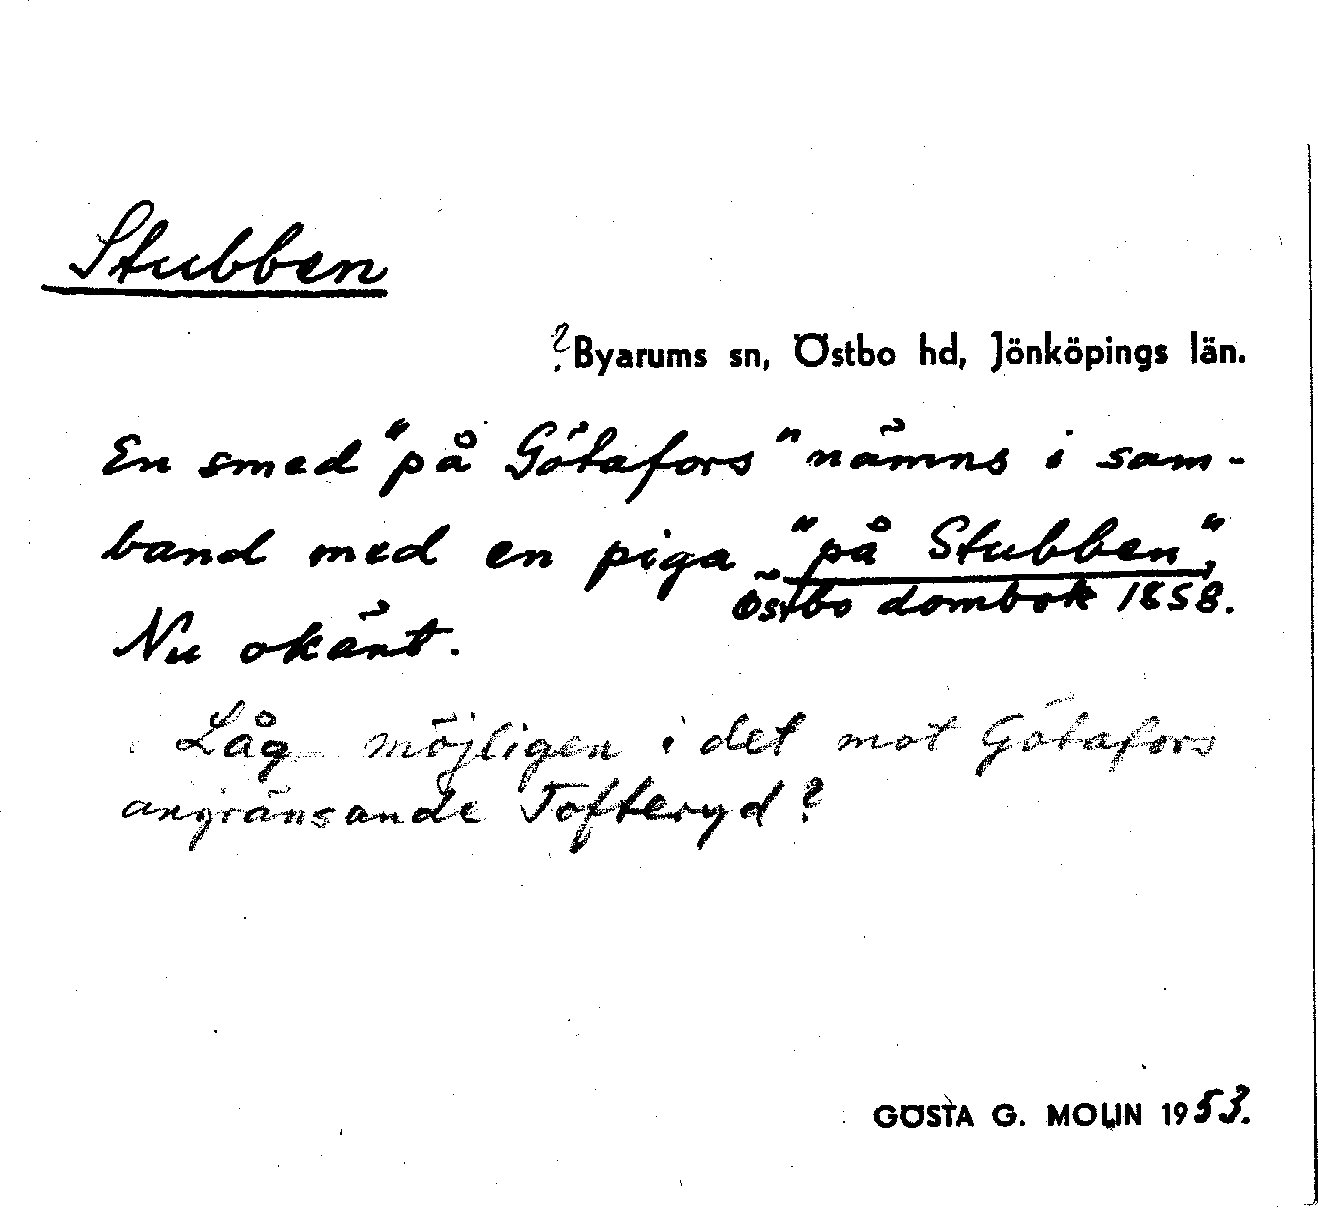 Stubben
? Byarums sn, Östbo hd, Jönköpings län.
En smed "på Götafors" nämns i sam-
band med en piga "på Stubben",
Östbo dombok 1858.
Nu okänt.
Låg möjligen i det mot Götafors
angränsande Tofteryd?
GÖSTA G. MOLIN 1953.